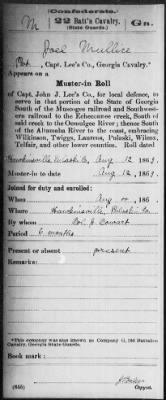 (Confederate.)
M 22 Batt'n Cavalry. Ga.
(State Guards.)
Joel Mullice
Pvt., Capt. Lee's Co., Georgia Cavalry.*
Appears on a
Muster-in Roll
of Capt. John J. Lee's Co., for local defence, to
serve in that portion of the State of Georgia
South of the Muscogee railroad and Southwest-
ern railroad to the Echeconnee creek, South of
said creek to the Oconulgee River; thence South
of the Altamaha River to the coast, embracing
Wilkinson, Twiggs, Laurens, Pulaski, Wilcox,
Telfair, and other lower counties. Roll dated
Hawkinsville Pulaski Co, Aug 12, 1863.
Muster-in to date Aug 12, 1863.
Joined for duty and enrolled:
When Aug 4, 186
Where Hawkinsville, Pulaski Co.
By whom Col. J. Cowart
Period 6 months
Present or absent present
Remarks:
*This company was also known as Company G, 22d Battalion
Cavalry, Georgia State Guards.
Book mark:
(640)
Copyist.